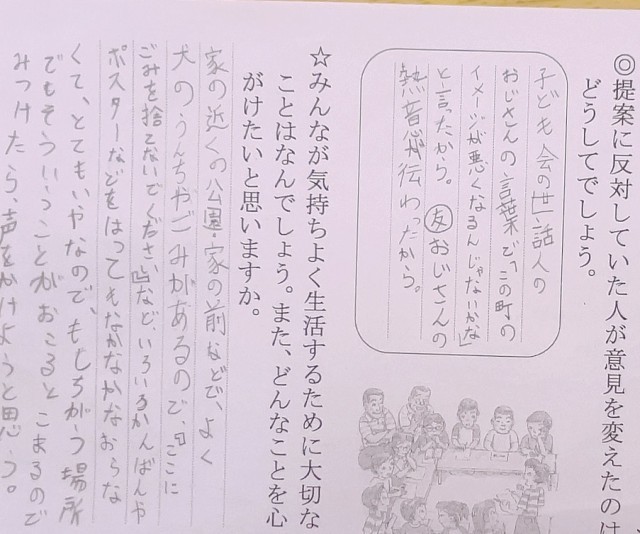 ◎提案に反対していた人が意見を変えたのは、
どうしてでしょう。
子ども会の世話人の
おじさんの言葉で「この町の
イメージが悪くなるんじゃないかな」
と言ったから。友おじさんの
熱意が伝わったから。
☆みんなが気持ちよく生活するために大切な
ことはなんでしょう。また、どんなことを心
がけたいと思いますか。
家の近くの公園・家の前などで、よく
犬のうんちやごみがあるので、「ここに
ごみを捨てないでください」など、いろいろかんばんや
ポスターなどをはってもなかなかなおらな
くて、とてもいやなので、もしちがう場所
でもそういうことがおこるとこまるので
みつけたら、声をかけようと思う。